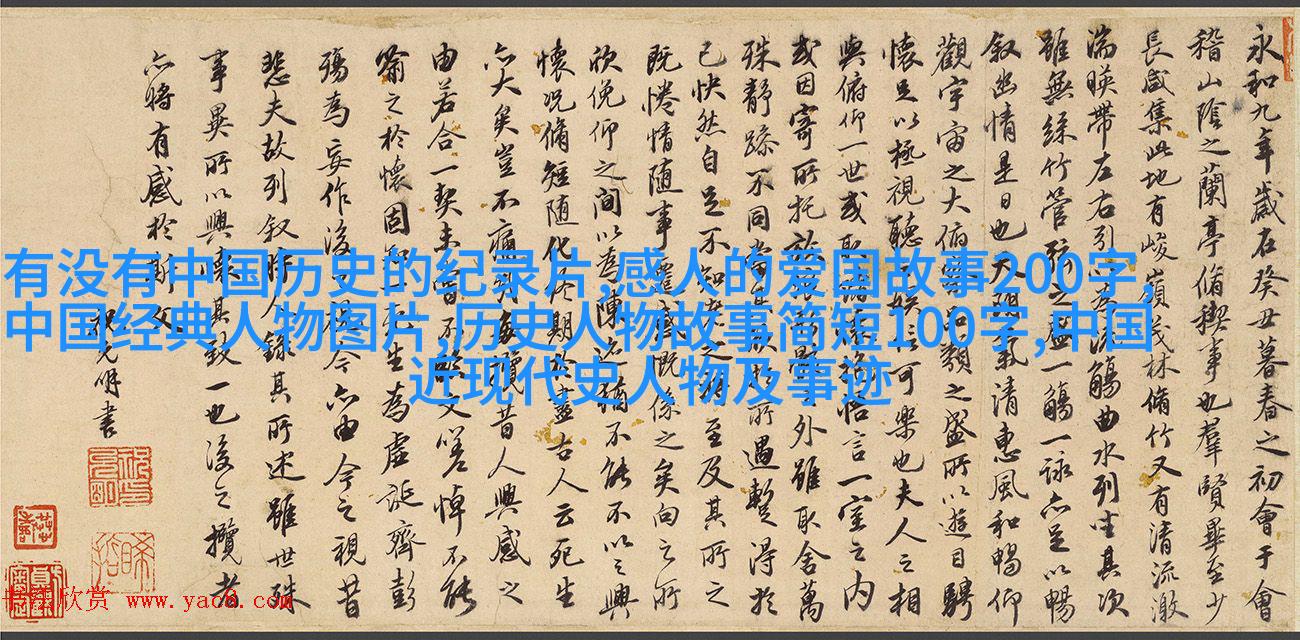 永和九年歲在癸丑暮春之初會于會
稽山陰之蘭亭脩稧事也羣賢畢至少
長咸集此地有峻嶺茂林脩竹又有清流激
湍暎帶左右引流觴曲水列坐其次
雖無絲竹管弦之盛一觴一詠亦足以暢
叙幽情是日也天朗氣清惠風和暢仰
觀宇宙之大俯類之盛所以遊目騁
懷足以極視聽娛可樂也夫人之相
與俯仰一世或取諸悟言一室之內
或因寄所托放外雖取舍萬
殊静躁不同當其所遇暫得於
己快然自足不知老之至及其所之
既惓情随事遷慨係之矣向之所
欣俛仰之間以為陳迹猶不能不以之興
懷況脩短随化終期於盡古人云死生
亦大矣豈不痛攬昔人興感之
由若合一契未嘗不文嗟悼不能
喻之於懷固知生為虛誕齊彭
殤為妄作後之視今亦由今之視昔
悲夫故列叙時人錄其所述雖世殊
事異所以興懷其致一也後之攬者
亦將有感於斯文
祝允明書
有没有中国历史的纪录片,感人的爱国故事200字,
中国经典人物图片,历史人物故事简短100字,中国
近现代史人物及事迹
书法欣赏 www.yac8.com